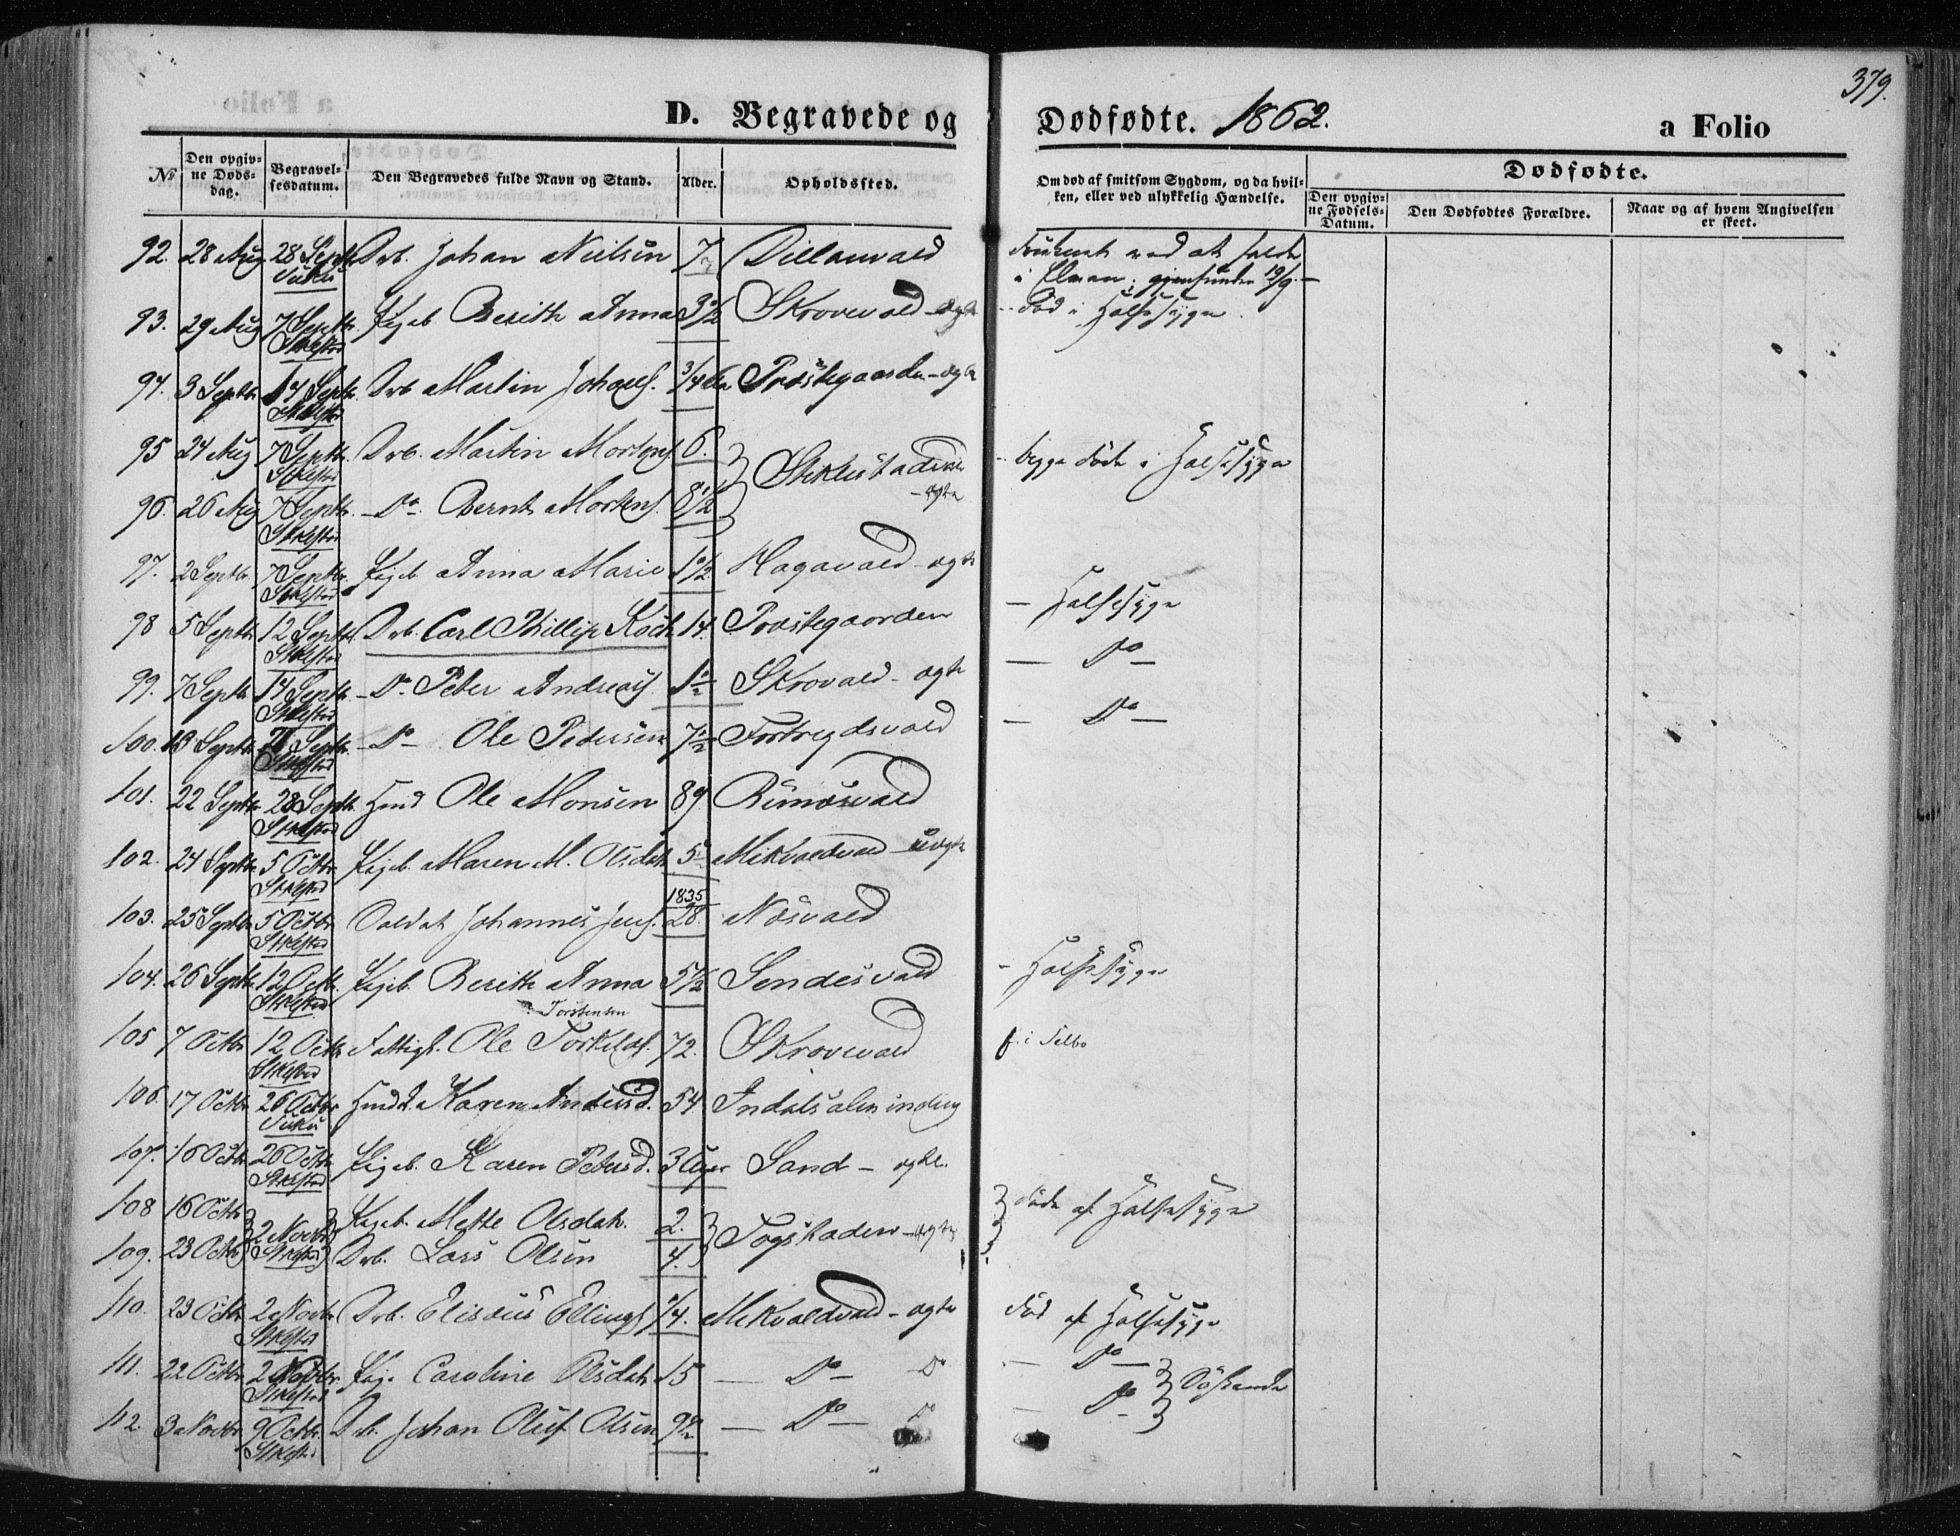 379.
D. Begravede og Dødfødte. 1862. a Folio
No
Den opgivne Dødsdag.
Begravelsesdatum.
Den Begravedes fulde Navn og Stand.
Alder.
Opholdssted.
Om død af smitsom Sygdom, og da hvilken, eller ved ulykkelig Hændelse.
Dødfødte.
Den opgivne Fødsels-Datum.
Den Dødfødtes Forældre.
Naar og af hvem Angivelsen er skeet.
92. 28 Aug 28 Septr Drb. Johan Nielsen 7 druknet ved at falde
i Elven, gjenfunden 19/9.
93. 29 Aug 7 Septr Stklstad Pigeb Beritte Anna 3 1/2 Skrovevald - ægte død i Halssyge
94. 3 Septbr 14 Septr Stklstad Drb Martin Johans. 3/4 Præstegaarden - ægte
95 24 Aug 7 Septbr. Stklstad Drb. Martin Mortens. 6. Stiklestad begge døde i Halssyge
96. 26 Aug 7 Septbr. Stklstad Do Bernt Mortens. 8 1/2 - ægte
97. 2 Septbr. 7 Septbr. Stklstad Pigeb Anna Marie 1 1/2 Hagavald - ægte
98 5 Septbr 12 Septbr Stklstad Drb. Carl Phillip Koch 14. Præstegaarden - Halssyge
99. 7 Septbr 14 Septbr Stklstad Do Peter Andreas 1 1/2 Skrovald - ægte - Do -
100. 13 Septbr 21 Septbr. Stklstad - Do - Ole Pedersen 7 1/2 - Do -
101. 22 Septbr 28 Septbr Stklstad Hmd Ole Monsen 89
102. 24 Septbr 5 Octbr Stklstad Pigeb. Maren M. Olsdatr 5 Mikvoldvald - uægte
103. 25 Septbr 5 Octbr Stklstad Soldat Johannes Jens. 1835 28. Næsvald
104. 26 Septbr 12 Octbr. Stklstad Pigeb. Beritte Anna 5 1/2 - Halssyge
Torstensen
105 7 Octbr 12 Octbr Stklstad Fattigl. Ole Torkels. 72. Skrovevald f. i Selbo
106. 17 Octbr 26 Octbr Hmd. Karen Andersd. 54
107. 16 Octbr 26 Octbr Stklstad Pigeb. Karen Petersd. 3 Uger Sand - ægte.
108 16 Octbr 2 Novbr Stklstad Pigeb. Mette Olsdatr. 2. døde af Halssyge
109. 23 Octbr Drb. Lars Olsen 4. - ægte
110. 23 Octbr 2 Novbr. Stklstad Drb. Eliseus Ellings 1/4. Mikvoldvald - ægte død af Halssyge
111. 22 Octbr 2 Novbr. Stklstad Pige Caroline Olsdatr 15 - Do - Do - Do - Søskende
112. 3 Novbr 9 Octbr. Stklstad Drb. Johan Oluf Olsen 9 1/2 - Do - Do - Do -